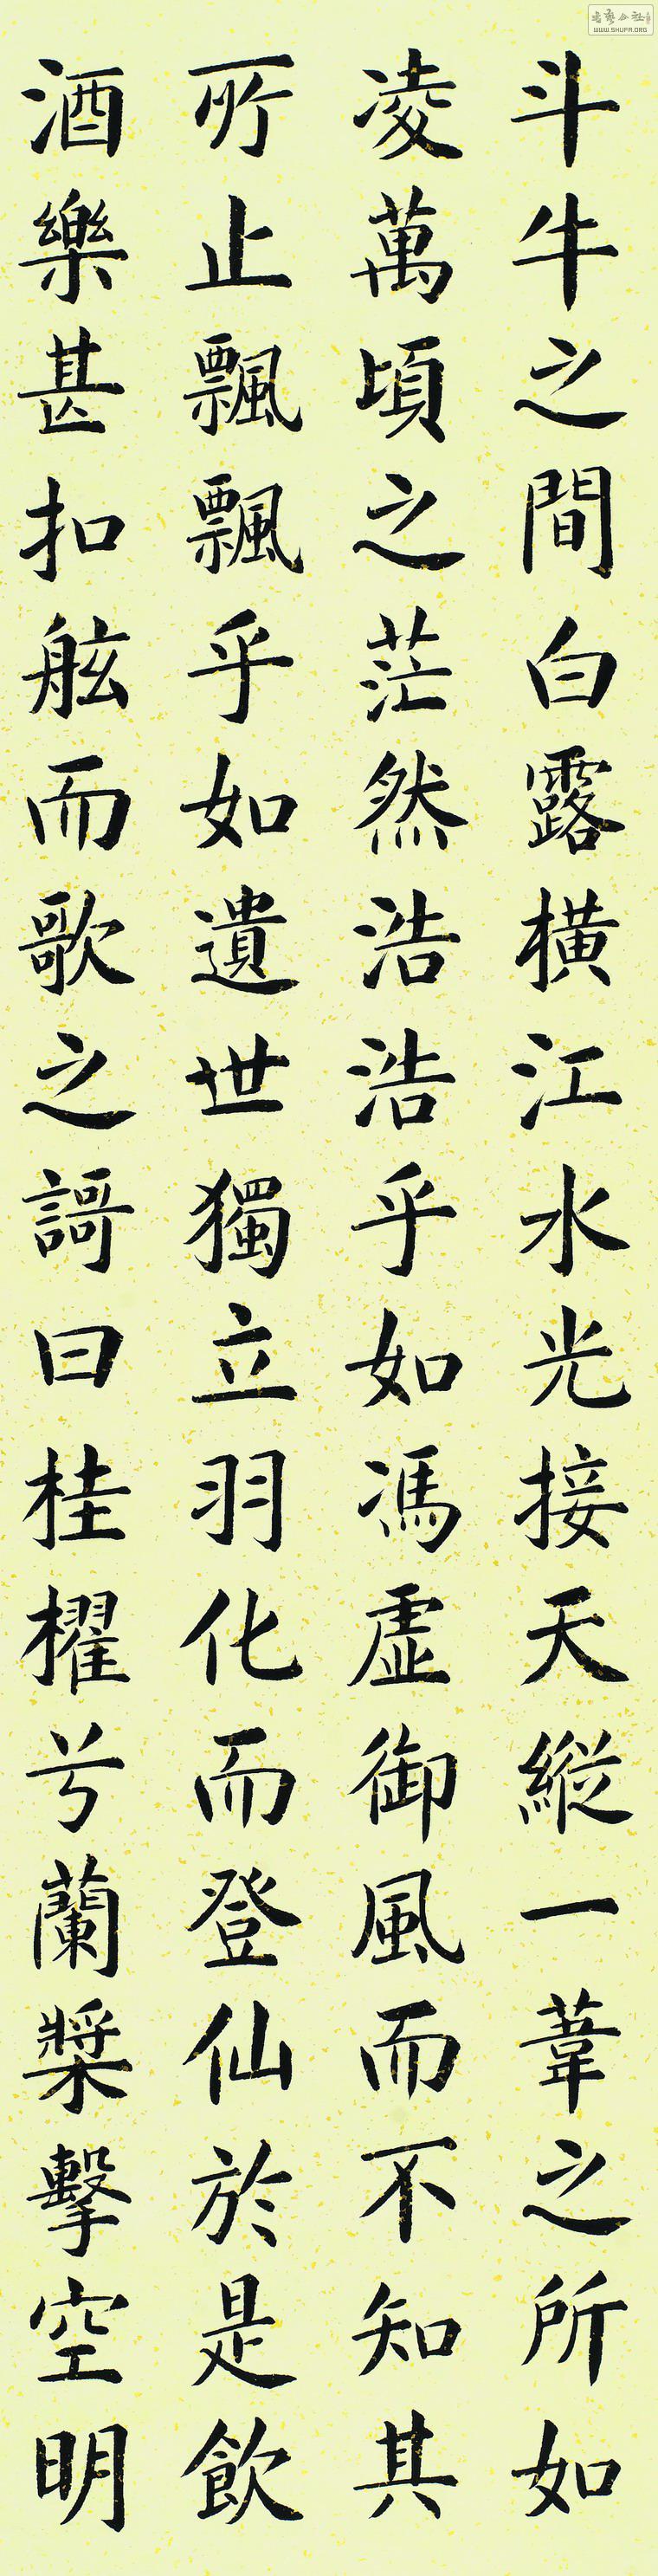 斗牛之間白露橫江水光接天縱一葦之所如
凌萬頃之茫然浩浩乎如馮虛御風而不知其
所止飄飄乎如遺世獨立羽化而登仙於是飲
酒樂甚扣舷而歌之謌曰桂櫂兮蘭槳擊空明
WWW.SHUFA.ORG